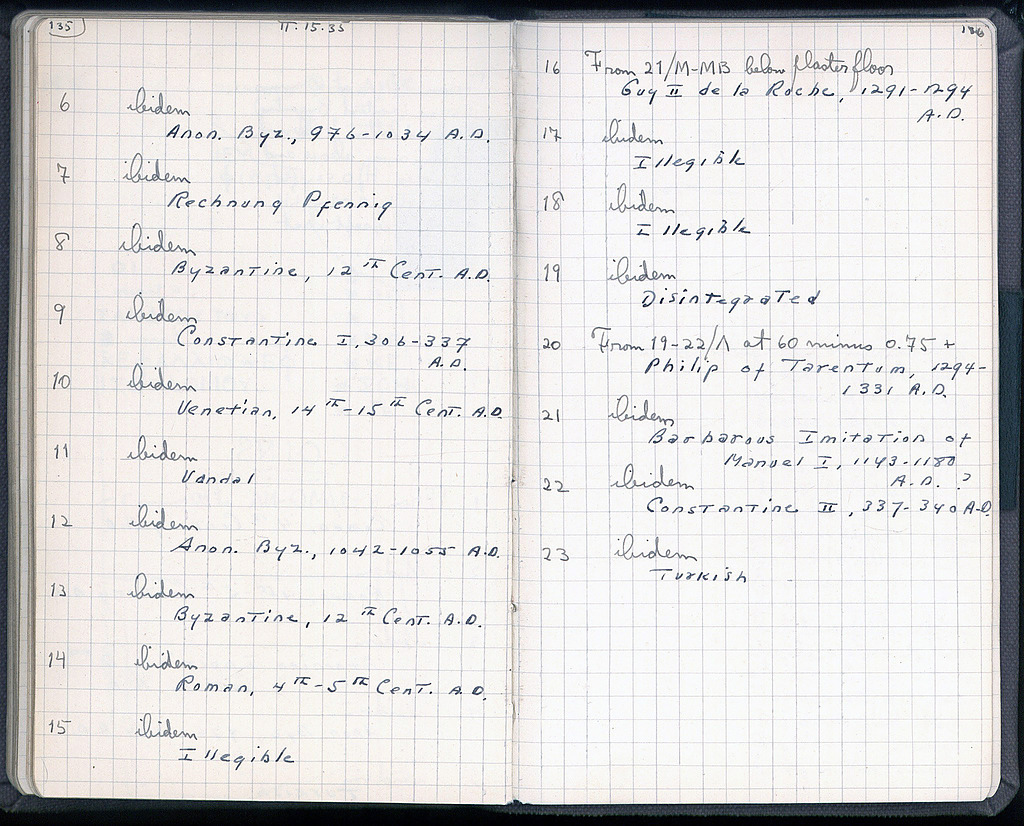 135
II. 15.35
6 ibidem
Anon. Byz., 976-1034 A.D.
7 ibidem
Rechnung Pfennig
8 ibidem
Byzantine, 12th Cent. A.D.
9 ibidem
Constantine I, 306-337
A.D.
10 ibidem
Venetian, 14th-15th Cent. A.D.
11 ibidem
Vandal
12 ibidem
Anon. Byz., 1042-1055 A.D.
13 ibidem
Byzantine, 12th Cent. A.D.
14 ibidem
Roman, 4th-5th Cent. A.D.
15 ibidem
Illegible
136
16 From 21/M-MB below plaster floor
Guy II de la Roche, 1291-1294
A.D.
17 ibidem
Illegible
18 ibidem
Illegible
19 ibidem
Disintegrated
20 From 19-22/Λ at 60 minus 0.75 +
Philip of Tarentum, 1294-
1331 A.D.
21 ibidem
Barbarous Imitation of
Manuel I, 1143-1180
A.D. ?
22 ibidem
Constantine II, 337-340 A.D.
23 ibidem
Turkish